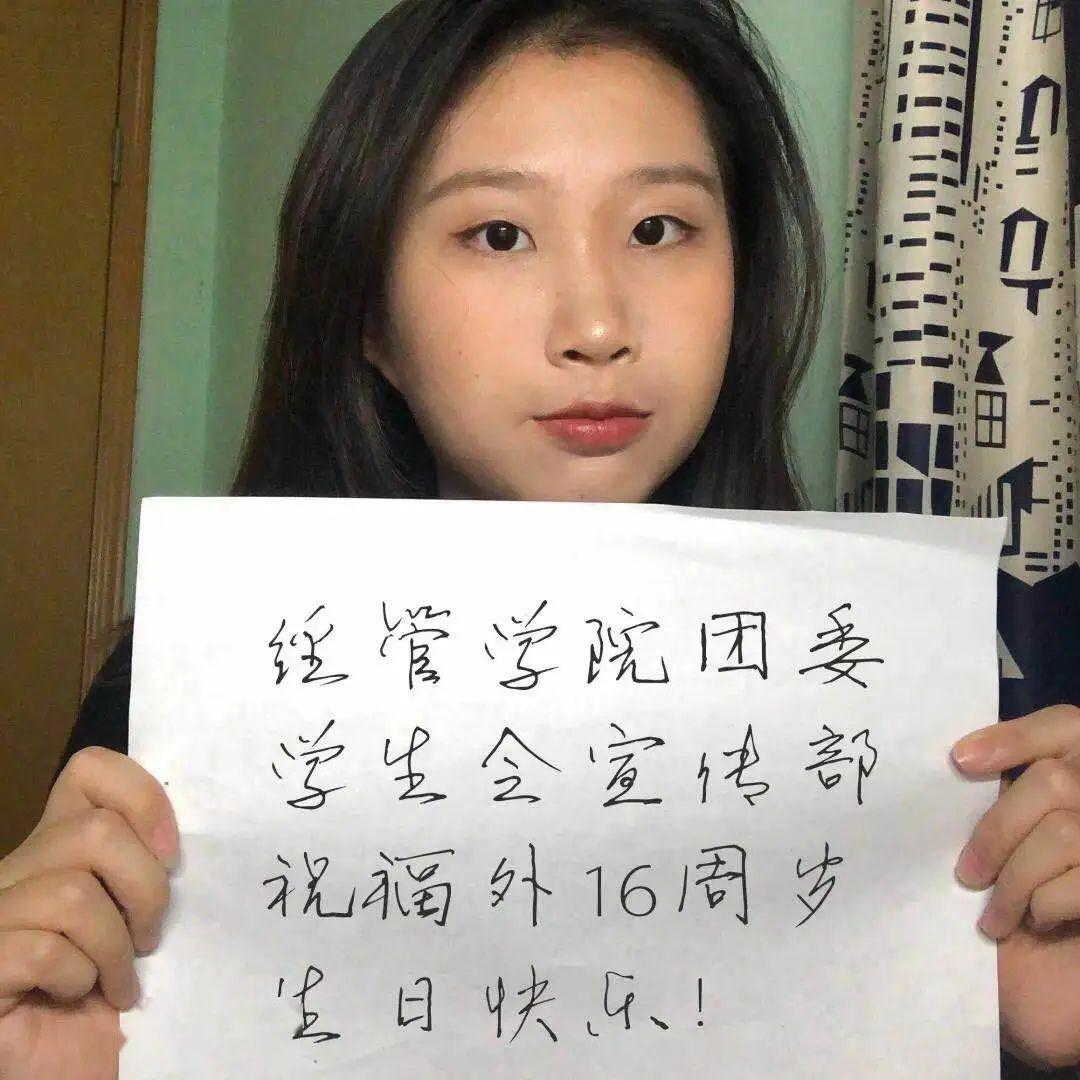 经管学院团委
学生会宣传部
祝福外16周岁
生日快乐!